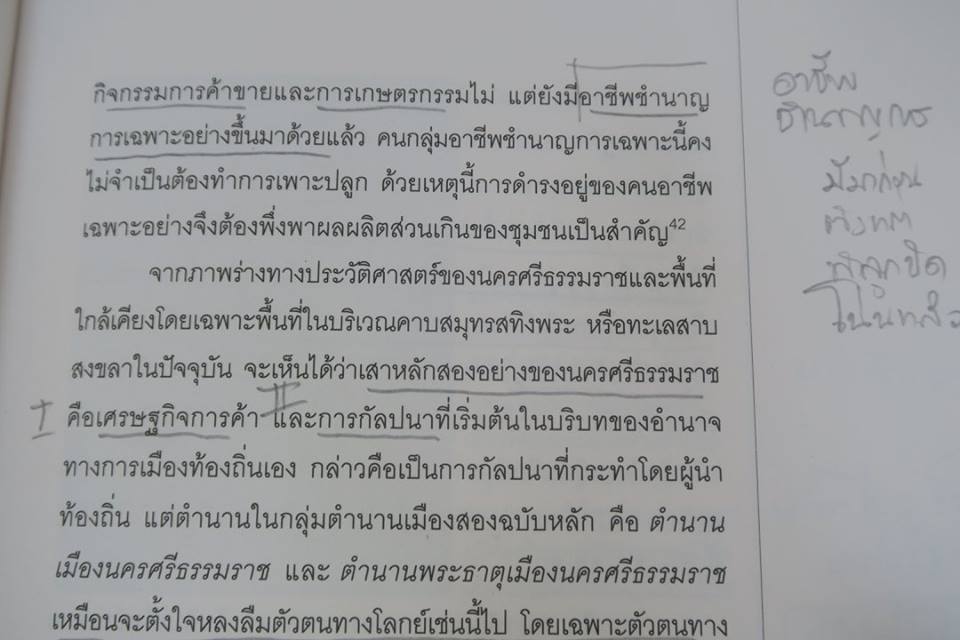 กิจกรรมการค้าขายและการเกษตรกรรมไม่ แต่ยังมีอาชีพชำนาญ
การเฉพาะอย่างขึ้นมาด้วยแล้ว คนกลุ่มอาชีพชำนาญการเฉพาะนี้คง
ไม่จำเป็นต้องทำการเพาะปลูก ด้วยเหตุนี้การดำรงอยู่ของคนอาชีพ
เฉพาะอย่างจึงต้องพึ่งพาผลผลิตส่วนเกินของชุมชนเป็นสำคัญ42
จากภาพร่างทางประวัติศาสตร์ของนครศรีธรรมราชและพื้นที่
ใกล้เคียงโดยเฉพาะพื้นที่ในบริเวณคาบสมุทรสทิงพระ หรือทะเลสาบ
สงขลาในปัจจุบัน จะเห็นได้ว่าเสาหลักสองอย่างของนครศรีธรรมราช
คือเศรษฐกิจการค้า และการกัลปนาที่เริ่มต้นในบริบทของอำนาจ
ทางการเมืองท้องถิ่นเอง กล่าวคือเป็นการกัลปนาที่กระทำโดยผู้นำ
ท้องถิ่น แต่ตำนานในกลุ่มตำนานเมืองสองฉบับหลัก คือ ตำนาน
เมืองนครศรีธรรมราช และ ตำนานพระธาตุเมืองนครศรีธรรมราช
เหมือนจะตั้งใจหลงลืมตัวตนทางโลกย์เช่นนี้ไป โดยเฉพาะตัวตนทาง
I
II
อาชีพ
ชำนาญการ